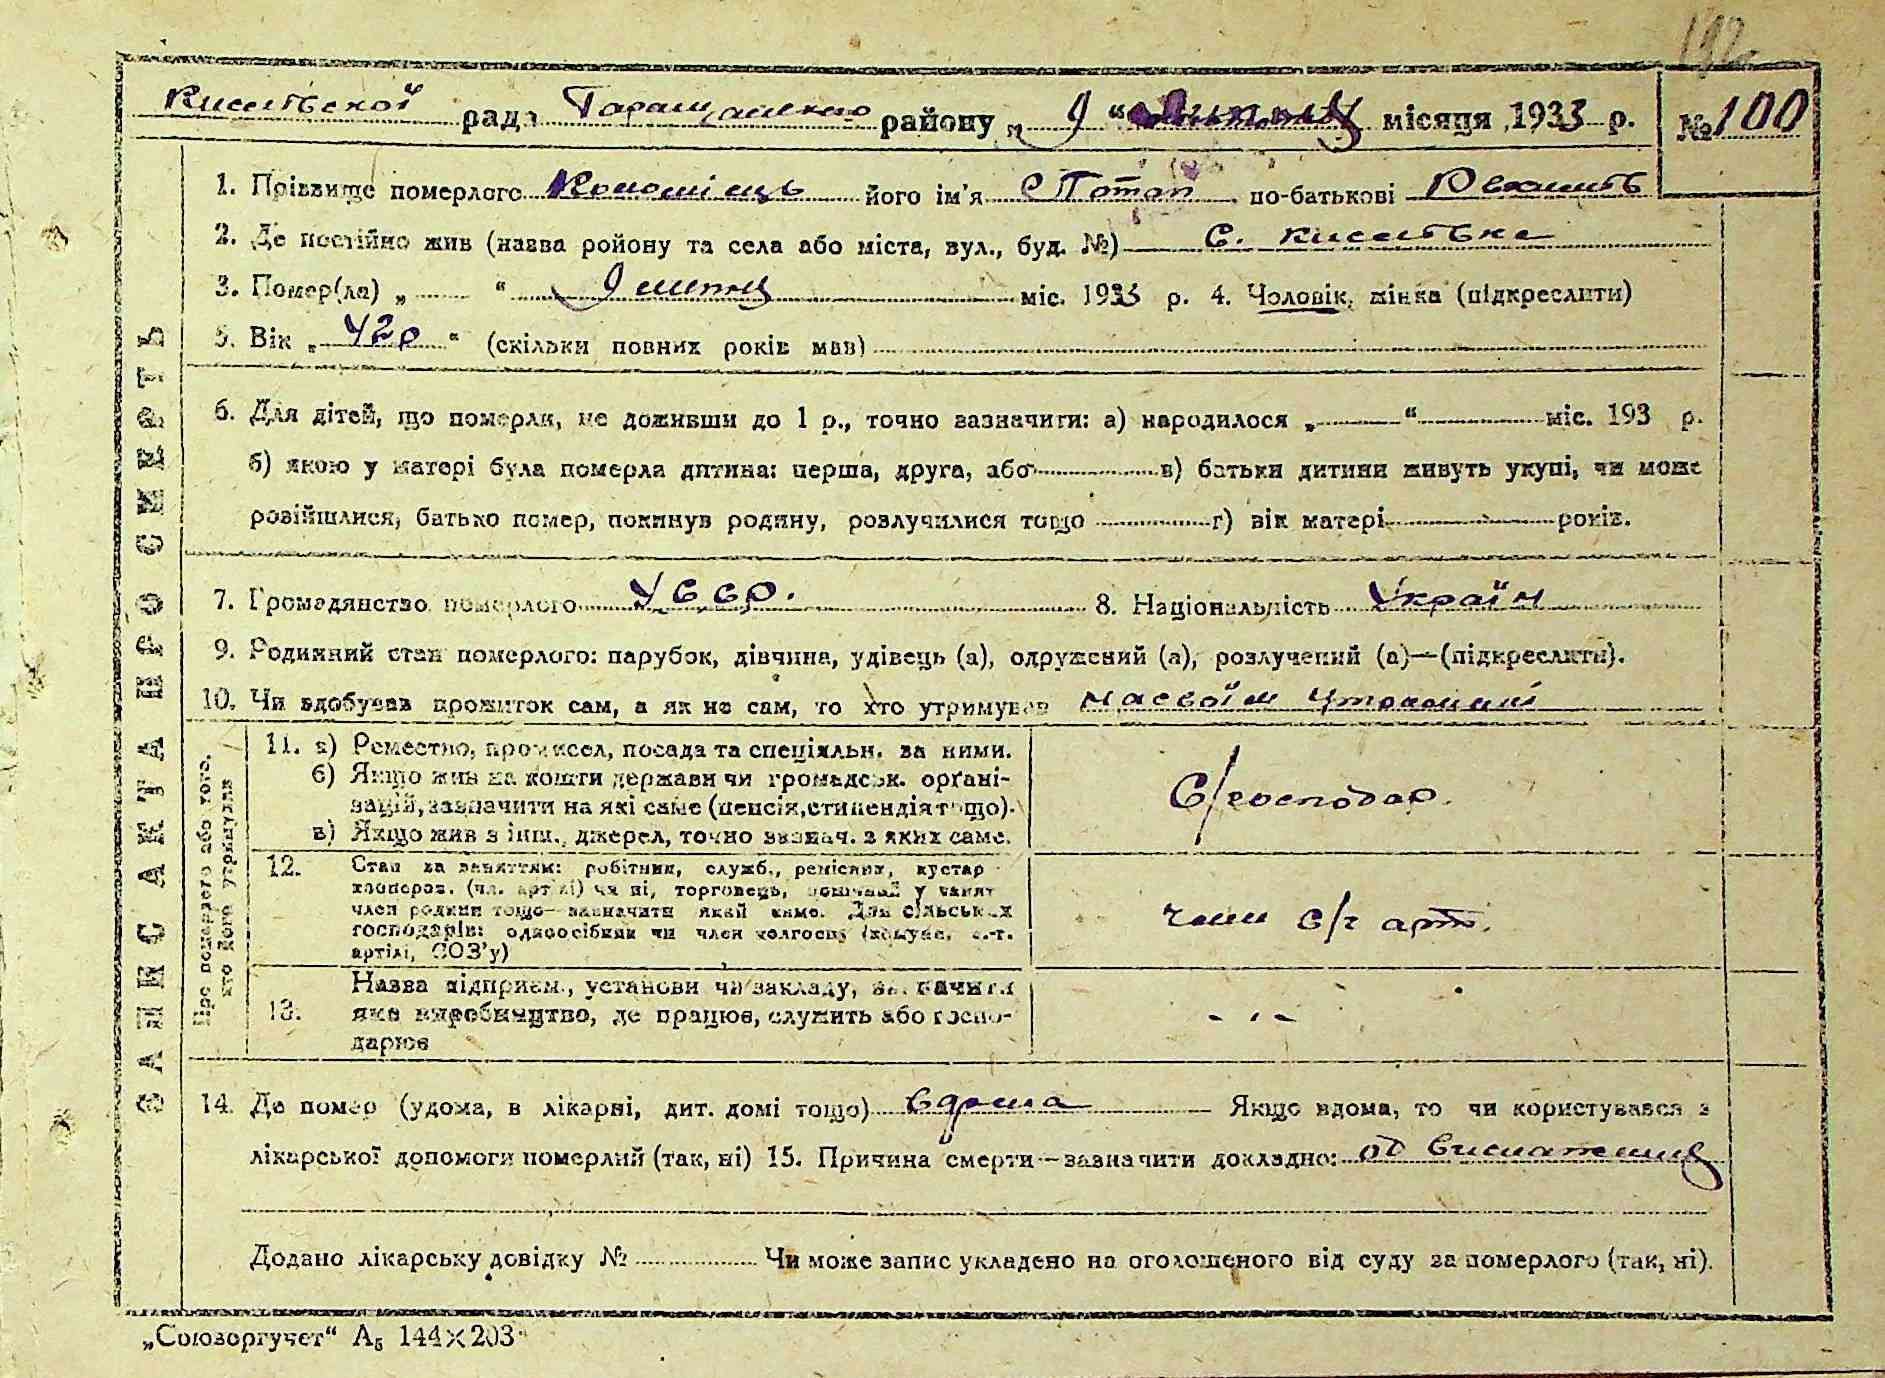 192
Кисилівської рада Таращанського району „ 9 “ місяця 1933 р. № 100
1. Прізвище померлого Коломієць його ім'я Потап по-батькові
2. Де постійно жив (назва району та села або міста, вул., буд. №) С. Кисилівка
3. Помер(ла) „ “ 9 липня міс. 1933 р. 4. Чоловік, жінка (підкреслити)
5. Вік „ 42 р “ (скільки повних років мав)
6. Для дітей, що померли, не доживши до 1 р., точно зазначити: а) народилося „ “ міс. 193 р.
б) якою у матері була померла дитина: перша, друга, або в) батьки дитини живуть укупі, чи може
розійшлися, батько помер, покинув родину, розлучилися тощо г) вік матері років.
7. Громадянство померлого УССР. 8. Національність Україн
9. Родинний стан померлого: парубок, дівчина, удівець (а), одружений (а), розлучений (а)—(підкреслити).
10. Чи здобував прожиток сам, а як не сам, то хто утримував на своїм утриманні
ЗАПИС АКТА ПРО СМЕРТЬ
Про померлого або того,
хто його утримував
11. а) Ремество, промисел, посада та спеціяльн. за ними.
б) Якщо жив на кошти держави чи громадськ. орґані-
зацій, зазначити на які саме (пенсія, стипендія тощо).
в) Якщо жив з інш., джерел, точно зазнач. з яких саме.
С/господар.
12. Стан за заняттям: робітник, служб., ремісник, кустар
кооперов. (чл. артілі) чи ні, торговець,
член родини тощо—зазначити який саме. Для сільських
господарів: одноосібник чи член колгоспу (комуни, с.-г.
артілі, СОЗ'у)
член с/г арт.
13. Назва підприєм., установи чи закладу, зазначити
яке виробництво, де працює, служить або госпо-
дарює
- „ -
14. Де помер (удома, в лікарні, дит. домі тощо) вдома Якщо вдома, то чи користувався з
лікарської допомоги померлий (так, ні) 15. Причина смерти—зазначити докладно: од виснаження
Додано лікарську довідку № Чи може запис укладено на оголошеного від суду за померлого (так, ні).
„Союзоргучет“ А₅ 144×203